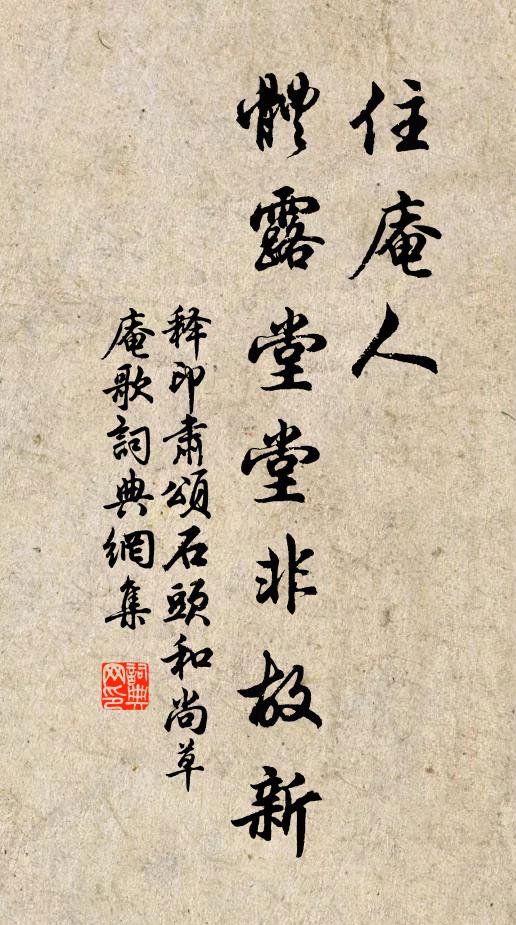 住庵人
體露堂堂非故新
释印肃頌石頭和尚草
庵歌詞典網集
詞典
网印